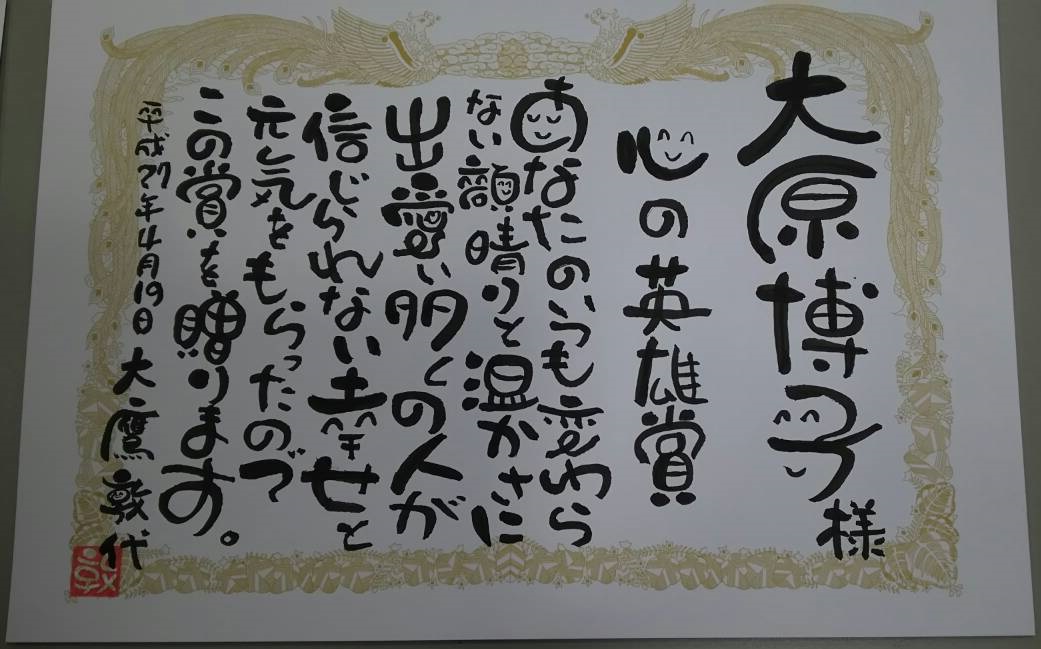 大原博子様
心の英雄賞
あなたのいつも変わら
ない顔晴りと温かさに
出愛い多くの人が
信じられない幸せと
元気をもらったので
この賞を贈ります。
平成27年4月19日 大鷹敦代